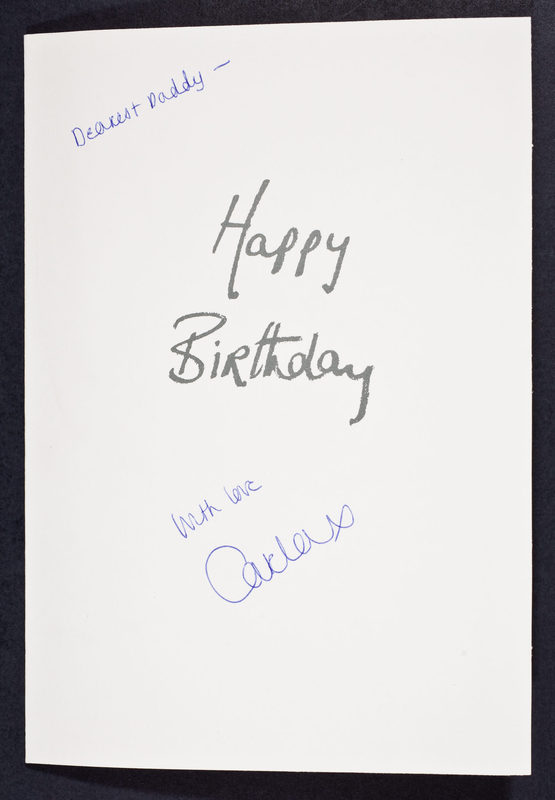 Dearest Daddy –
Happy
Birthday
With love
Carla x